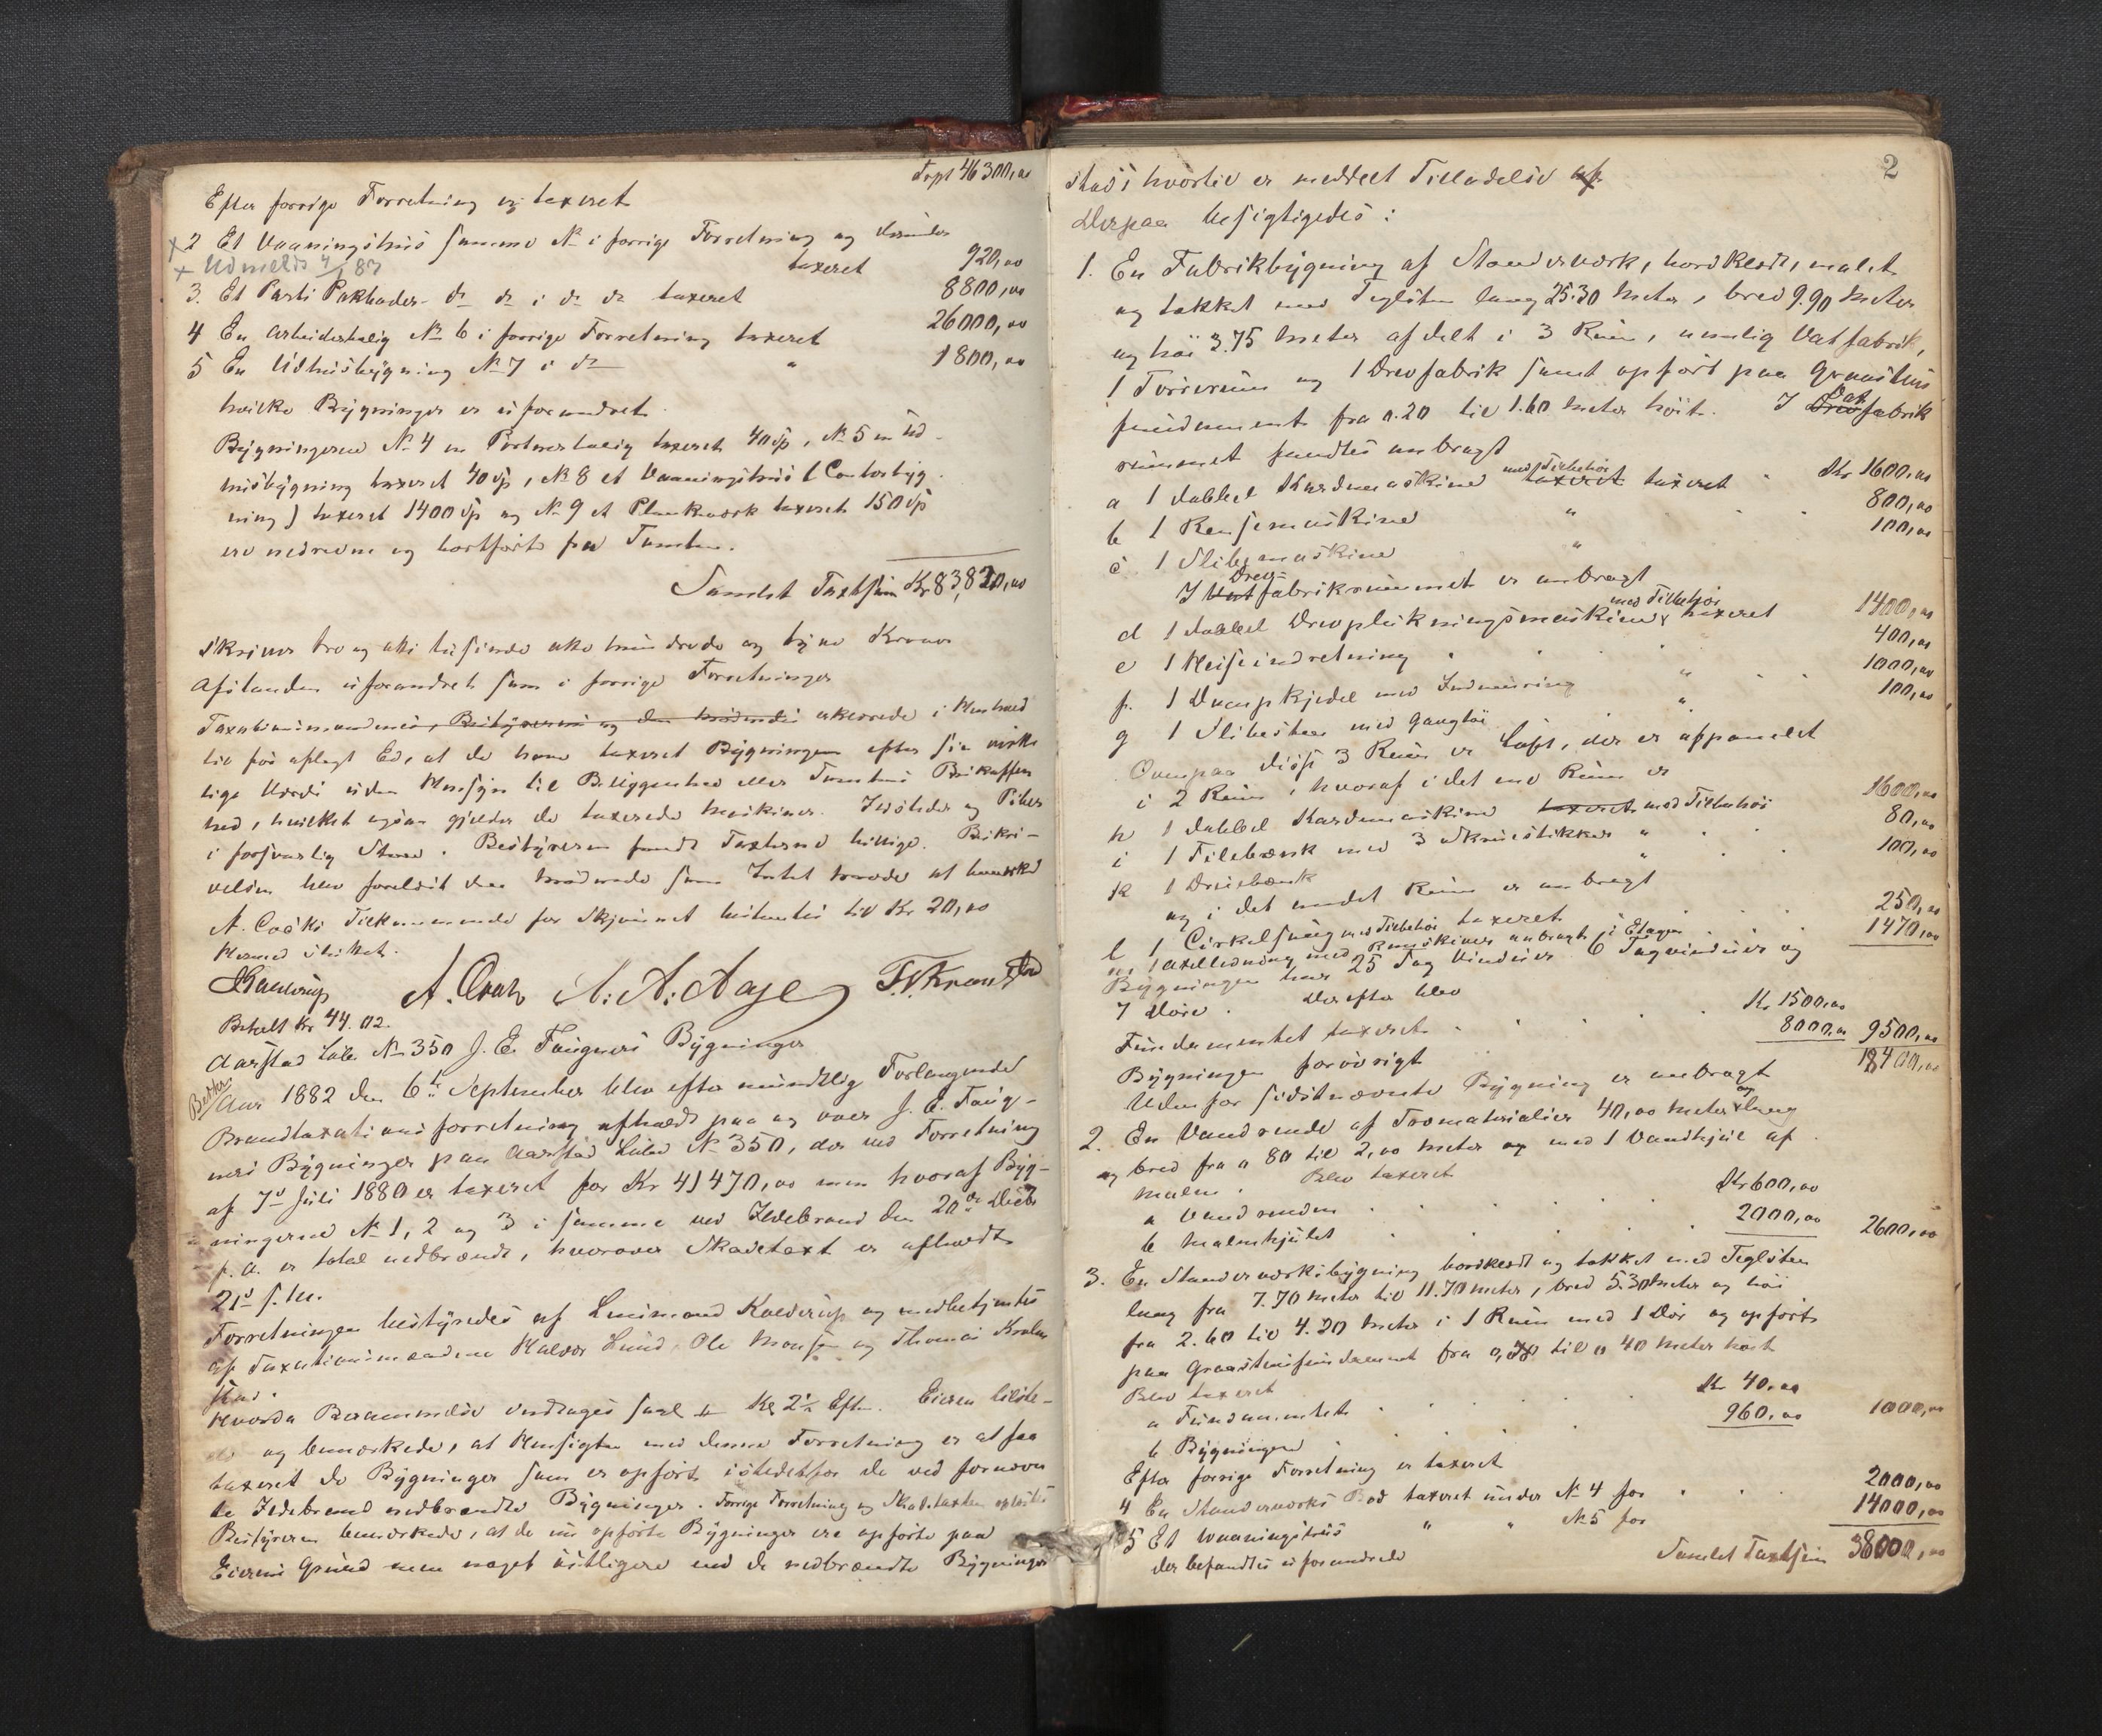 Trpt 46300,00
Efter forrige Forretning er taxeret
2 Et Vaaningshus samme No i forrige Forretning og derunder
taxeret 920,00
+ Udmeldt 4/1 87
3. Et Parti Pakboder do do i do do taxeret 8800,00
4 En Arbeiderbolig No 6 i forrige Forretning taxeret 26000,00
5 En Udhusbygning No 7 i do " 1800,00
hvilke Bygninger er uforandret.
Bygningerne No 4 en Portnerbolig taxeret 40 Sp, No 5 en Ud-
husbygning taxeret 40 Sp, No 8 et Vaaningshus (Contorbyg
ning) taxeret 1400 Sp og No 9 et Plankeværk taxeret 150 Sp
ere nedrevne og bortført fra Tomten.
Samlet Taxtsum Kr 83,820,00
skriver tre og otti tusinde otte hundrede og tyve Kroner
Afstanden uforandret som i forrige Forretninger
Taxationsmændene, Bestyreren og den mødende erklærede i Henhold
til før aflagt Ed, at de have taxeret Bygningen efter sin virke
lige Værdi uden Hensyn til Beliggenhed eller Tomtens Beskaffen
hed, hvilket ogsaa gjælder de taxerede Maskiner. Ildsteder og Piber
i forsvarlig Stand. Bestyreren fandt Taxterne billige. Beskri-
velsen blev forelæst den mødende som Intet havde at bemærke
A. Cooks Tilkommende for Skjønnet bestemtes til Kr 20,00
Hermed sluttet.
Kalderup A. Cook A. A. Aase T. Kronstad
Betalt Kr 44.02.
Aarstad Løbe No 350 J. E. Faugners Bygninger
Aar 1882 den 6te September blev efter mundtlig Forlangende
Brandtaxationsforretning afholdt paa og over J. E. Faug-
ners Bygninger paa Aarstad Løbe No 350, der ved Forretning
af 7de Juli 1880 er taxeret for Kr 41470,00 men hvoraf Byg-
ningerne No 1, 2 og 3 i samme ved Ildebrand den 20de Decbr
f. A. er total nedbrændt, hvorover Skadetaxt er afholdt
21de s. M.
Forretningen bestyredes af Lensmand Kalderup og medbetjentes
af Taxationsmændene Halvor Lund, Ole Monsen og Thomas Kron
stad.
Hvorda Berammelse vedtages saal Kl 2½ Eft. Eieren tilste-
de og bemærkede, at Hensigten med denne Forretning er at faa
taxeret de Bygninger som er opført istedetfor de ved fornævn
te Ildebrand nedbrændte Bygninger. Forrige Forretning og Skadetaxten oplæstes
Bestyreren bemærkede, at de nu opførte Bygninger ere opførte paa
Eierens Grund men noget østligere end de nedbrændte Bygninger
2
stod i hvortil er meddelt Tilladelse
Derpaa besigtigedes:
1. En Fabrikbygning af Standerværk, bordklædt, malet
og tækket med Teglsten lang 25.30 Meter, bred 9.90 Meter
og høi 3.75 Meter afdelt i 3 Rum, nemlig Vatfabrik,
1 Tørrerum og 1 Drevfabrik samt opført paa Graastens
fundament fra 0.20 til 1.60 Meter høit. I Drev Vatfabrik
rummet fandtes anbragt
a 1 dobbel Kardemaskine med Tilbehør taxeret taxeret Kr 1600,00
b 1 Rensemaskine " 800,00
c 1 Slibemaskine " 100,00
I Vat Drev-fabrikrummet er anbragt
d 1 dobbel Drevplukningsmaskine med Tilbehør taxeret 1400,00
e 1 Heiseindretning 400,00
f. 1 Dampkjedel med Indmuring " 1000,00
g 1 Slibesten med Gangtøi " 100,00
Ovenpaa disse 3 Rum er Loft, der er oppanelet
i 2 Rum, hvoraf i det ene Rum er
h 1 dobbel Kardemaskine taxeret med Tilbehør 1600,00
i 1 Filebænk med 3 Skruestikker " 80,00
k 1 Dreiebænk " 100,00
og i det andet Rum er anbragt
l 1 Cirkelsaug med Tilbehør taxeret 250,00
m 1 Axelledning med Remskiver anbragt i Etagen 1470,00
Bygningen har 25 Fag Vinduer 6 Tagvinduer og
7 Døre. Derefter blev
Fundamentet taxeret Kr 1500,00
Bygningen forøvrigt 8000,00 9500,00
18400,00
Udenfor sidstnævnte Bygning er anbragt
2. En Vandrende af Træmaterialier 40,00 Meter lang
og bred fra 0 80 til 2,00 Meter og med 1 Vandhjul af
Malm. Blev taxeret
a Vandrenden Kr 600,00
b Malmhjulet 2000,00 2600,00
3. En Standerværksbygning bordklædt og tækket med Teglsten
lang fra 7.70 Meter til 11.70 Meter, bred 5.30 Meter og høi
fra 2.60 til 4.20 Meter i 1 Rum med 1 Dør og opført
paa Graastensfundament fra til 0 40 Meter høit
Blev taxeret
a Fundamentet Kr 40.00
b Bygningen 960.00 1000,00
Efter forrige Forretning er taxeret
4 En Standerværks Bod taxeret under No 4 for 2000,00
5 Et Vaaningshus " " No 5 for 14000,00
der befandtes uforandrede Samlet Taxtsum 38000,00